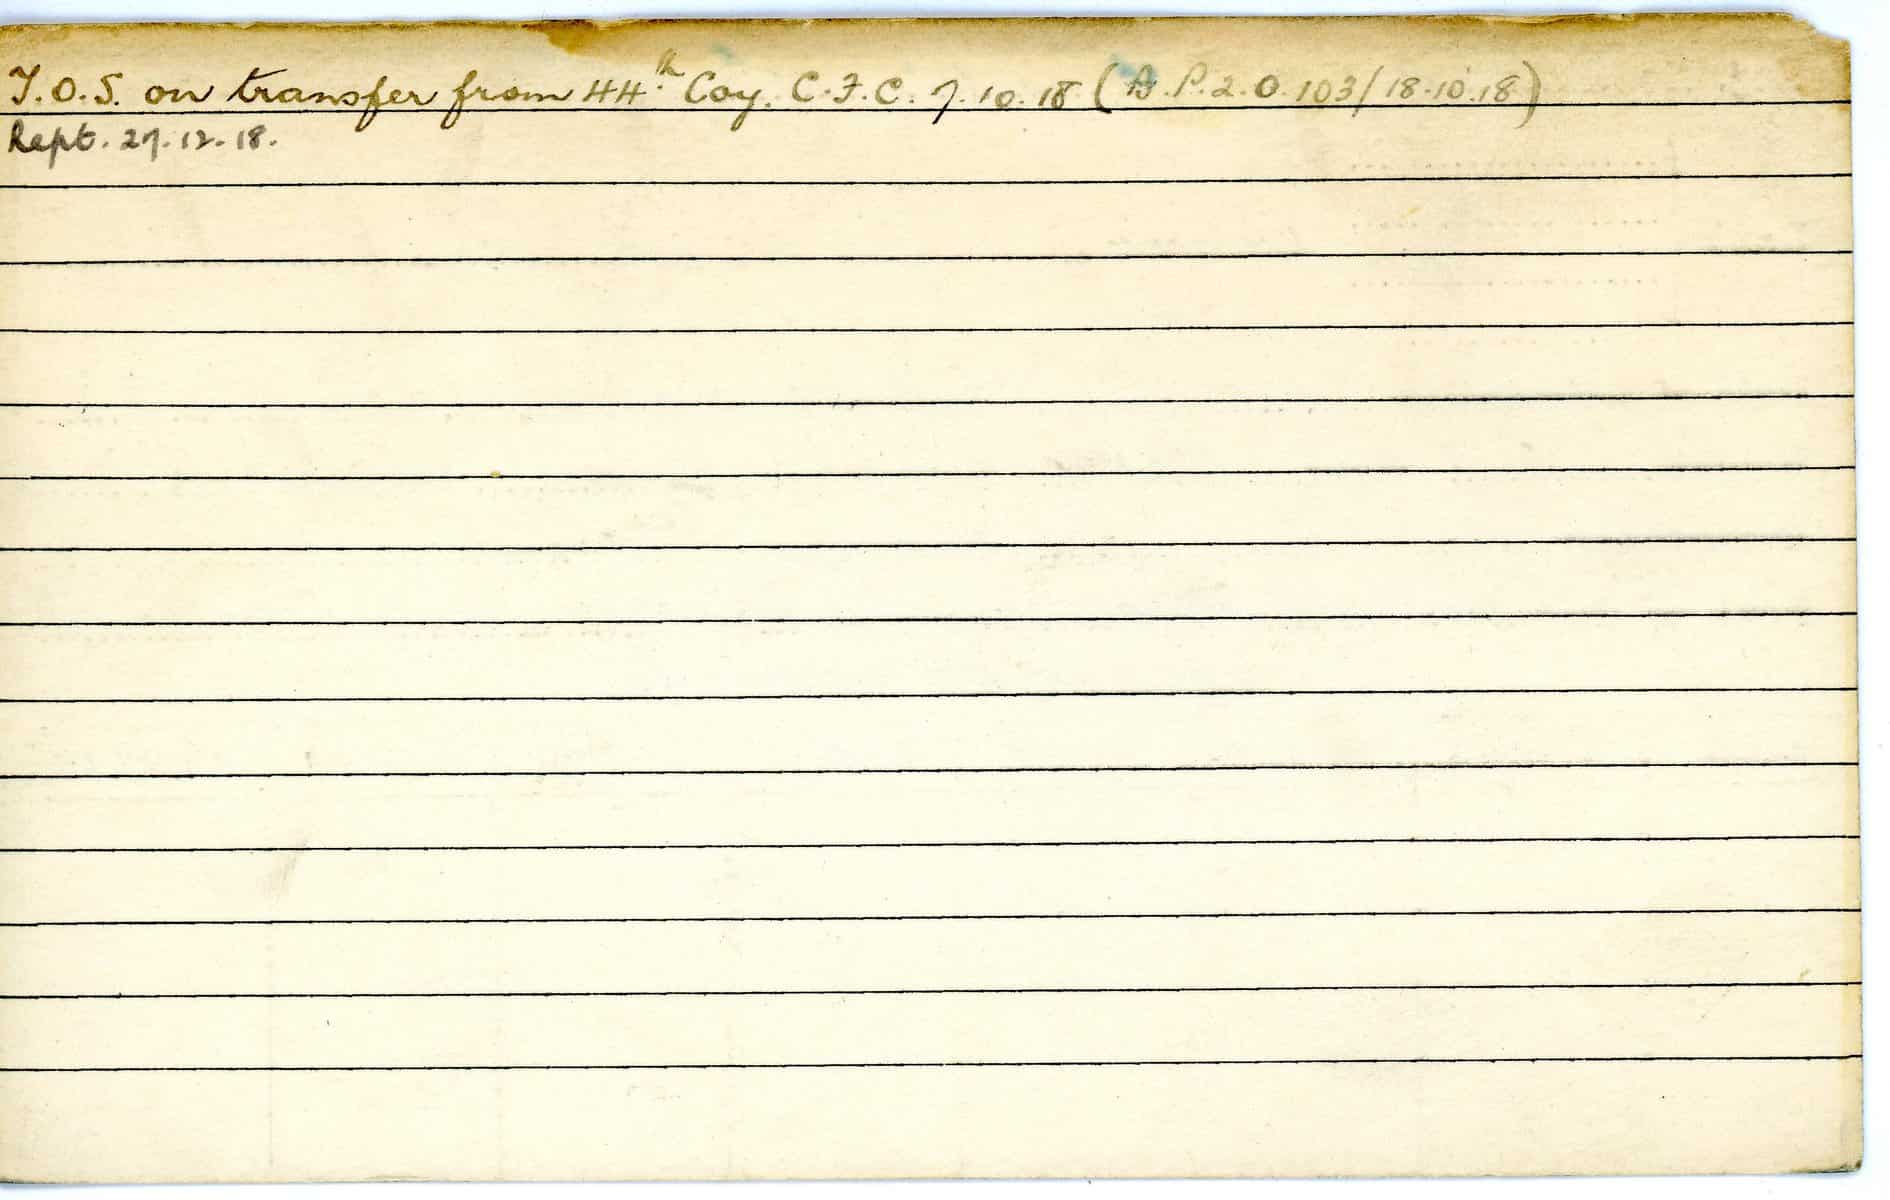 T.O.S. on transfer from 44th Coy. C.F.C. 7.10.18 (A.P.2.O.103/18.10.18)
Rept. 27.12.18.